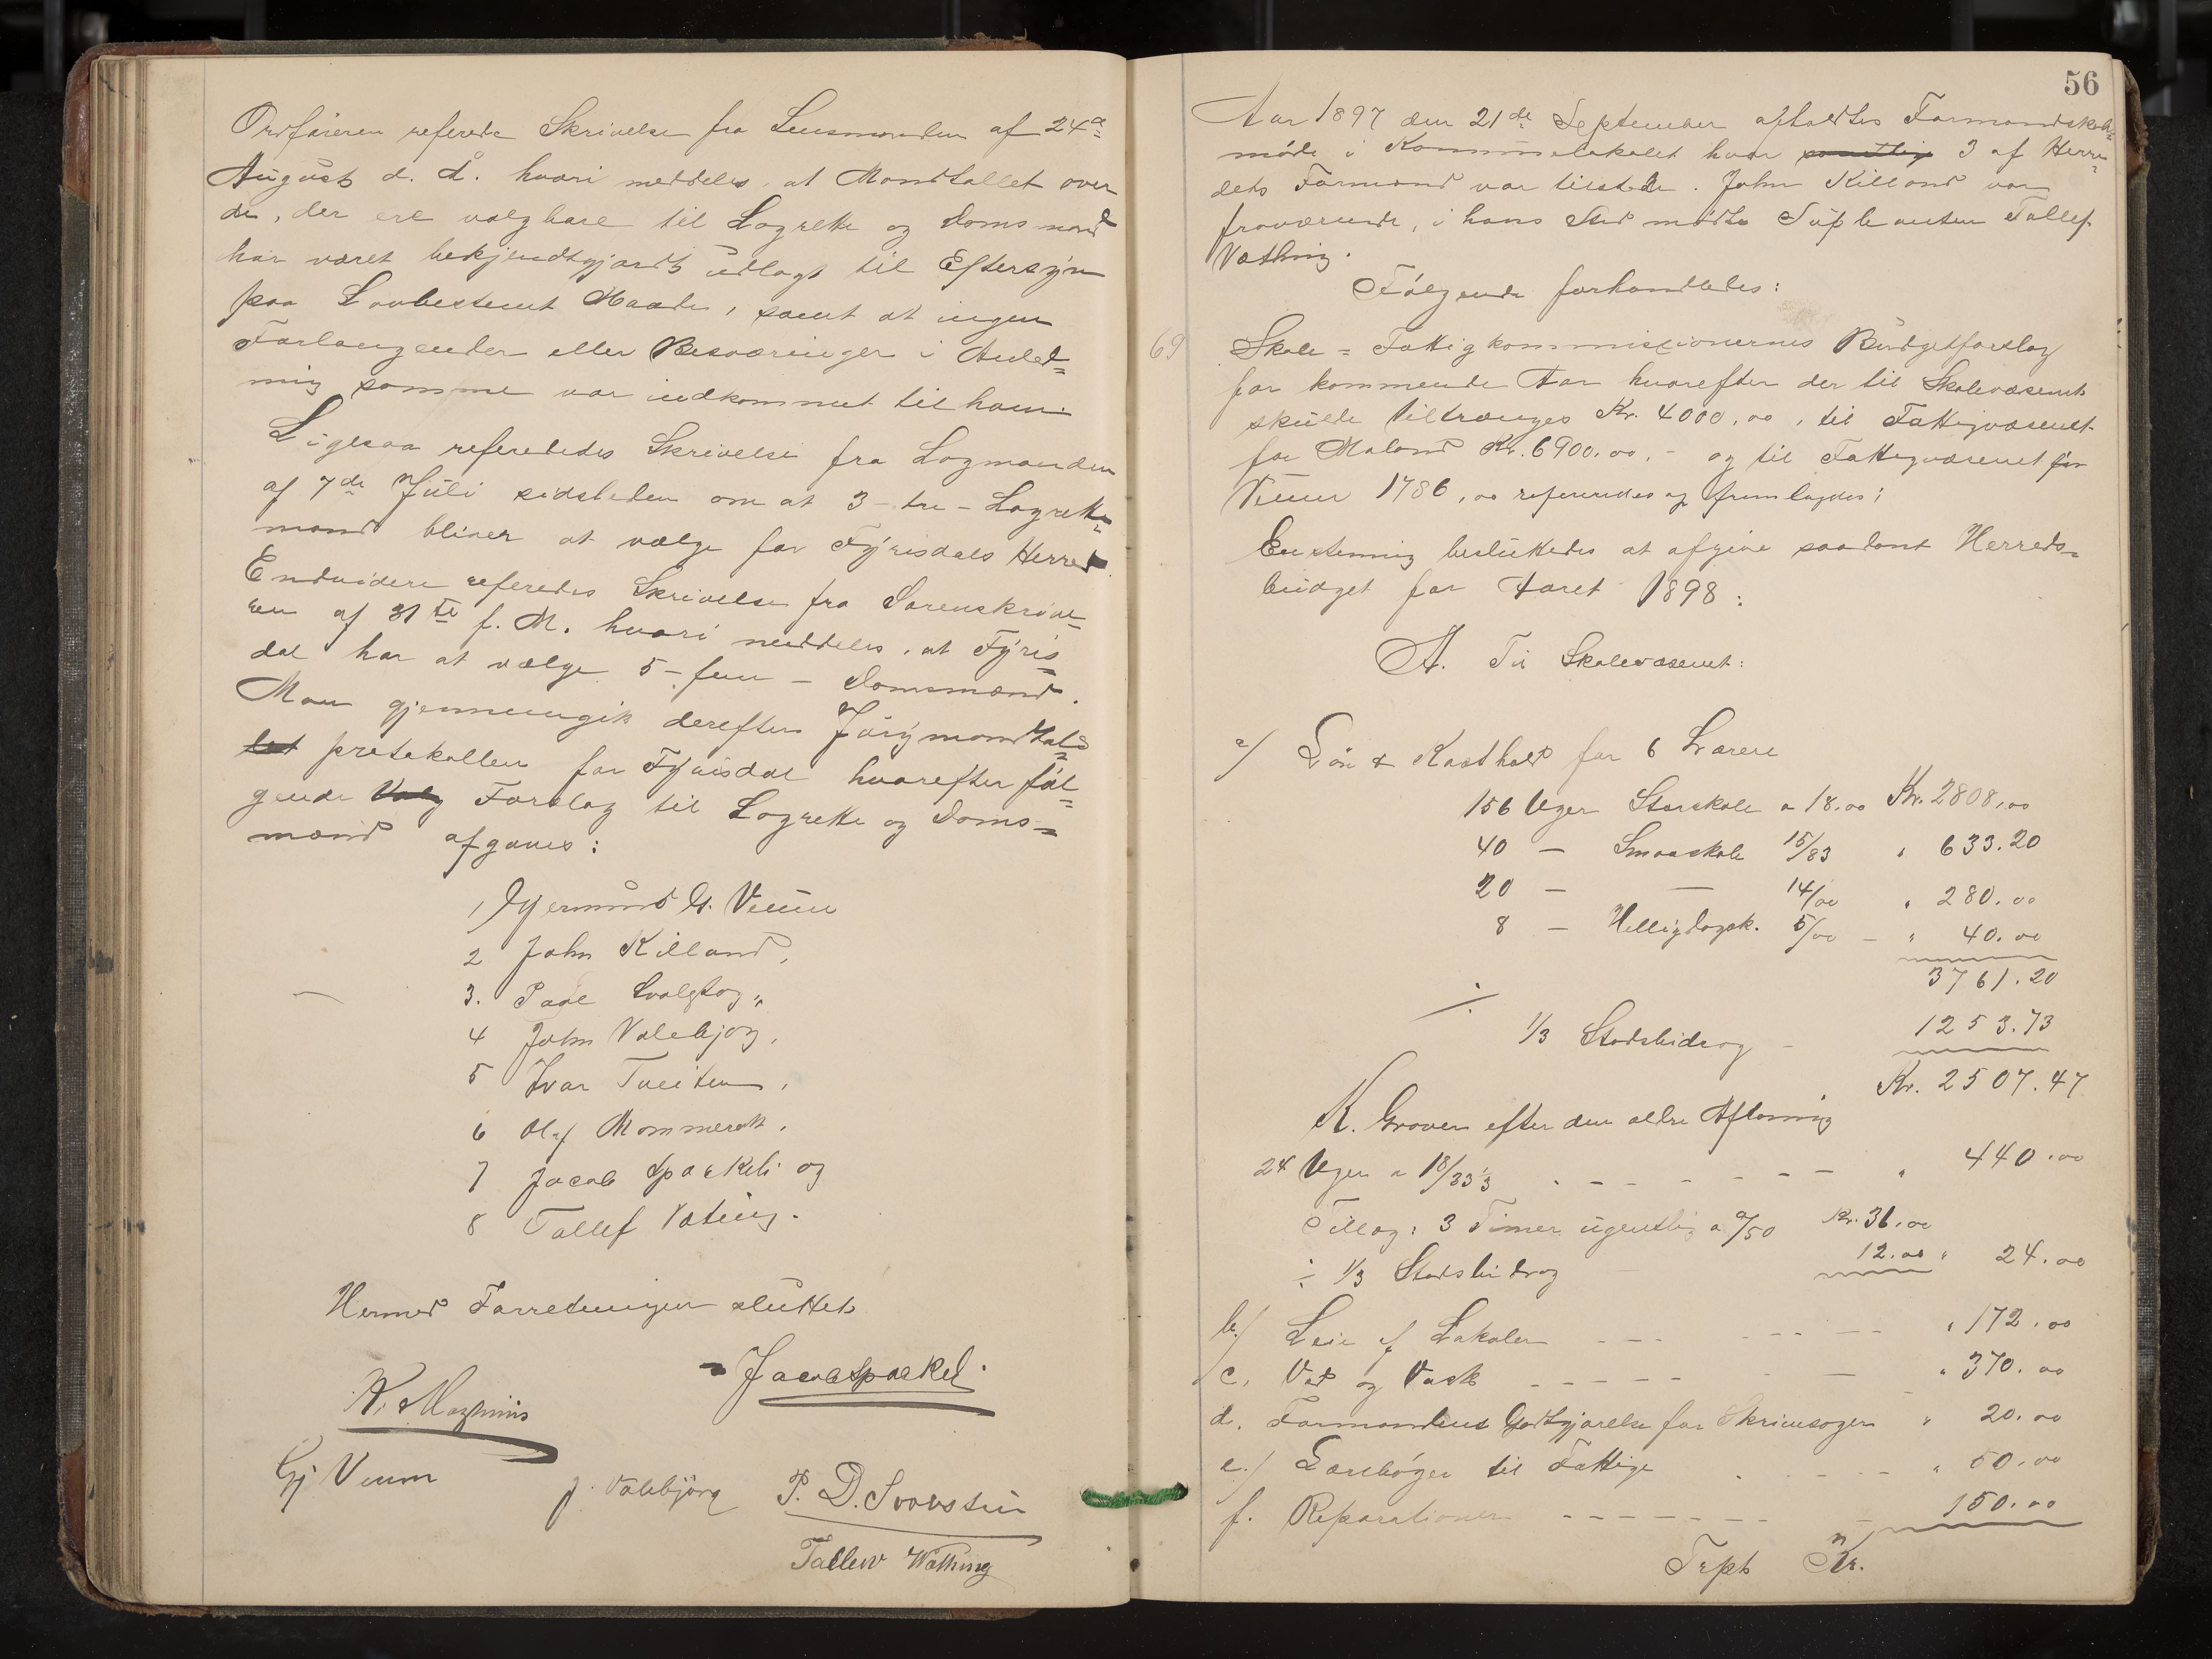 Ordføreren referede Skrivelse fra Lensmanden af 24de
August d. A. hvori meddeles, at Mandtallet over
de, der ere valgbare til Lagrette og Doms mænd
har været bekjendtgjordt udlagt til Eftersyn
paa Lovbestemt Maade, samt at ingen
Forlangender eller Besværinger i Anled=
ning samme var indkommet til ham.
Ligesaa referededes Skrivelse fra Lagmanden
af 7de Juli sidstleden om at 3 - tre - Lagrette=
mænd bliver at vælge for Fyrisdals Herred.
Endvidere referedes Skrivelse fra Sorenskrive=
ren af 31te f. M. hvori meddeles, at Fyris=
dal har at vælge 5 - fem - Domsmænd.
Man gjennemgik derefter Jurymandtals=
let protokollen for Fyrisdal hvorefter føl=
gende Valg Forslag til Lagrette og Doms=
mænd afgaves:
1 Gjermund G. Veum
2 John Killand,
3. Paal
4 John Valebjørg,
5 Ivar Tveiten,
6 Olaf Mommerak,
7 Jacob Spækeli og
8 Tallef Vatning.
Hermed Forretningen sluttet
Jacob Spækeli
Gj Veum
J. Valebjörg
P. D.
Tallew Wathing
56
Aar 1897 den 21de September afholdtes Formandskabs=
møde i Kommunelokalet hvor samtlig 3 af Herre=
dets Formænd var tilstede. John Killand var
fraværende, i hans Sted mødte Supleanten Tallef
Vathing.
Følgende forhandledes:
69 Skole = Fattigkommissionernes Budgetforslag
for kommende Aar hvorefter der til Skolevæsenet
skulde tiltrænges Kr. 4000,00, til Fattigvæsenet
for Moland Kr. 6900.00, - og til Fattigvæsenet for
Veum 1786,00 refereredes og fremlagdes;
Enstemmig besluttedes at afgive saadant Herreds=
budget for Aaret 1898:
A. Til Skolevæsenet:
a/ Løn & Kosthold for 6 Lærere
156 Uger Storskole a 18.00 Kr. 2808,00
40 — Smaaskole 15/83 " 633.20
20 — — 14/00 " 280.00
8 — Helligdagsk. 5/00 — " 40.00
3761.20
÷ 1/3 Statsbidrag - 1253.73
Kr. 2507.47
K. Groven efter den ældre Aflønning
24 Uger a 18/33 1/3 - - - - - - - " 440.00
Tillæg: 3 Timer ugentlig a 0/50 Kr. 36,00
÷ 1/3 Statsbidrag 12.00 " 24.00
b/ Leie af Lokaler - - - - - - - - " 172.00
c, Ved og Vask - - - - - - - " 370.00
d. Formandens Godtgjørelse for Skrivesager " 20.00
e./ Lærebøger til Fattige - - - - - " 50.00
f. Reparationer - - - - - - - 150.00
Trpt Kr.